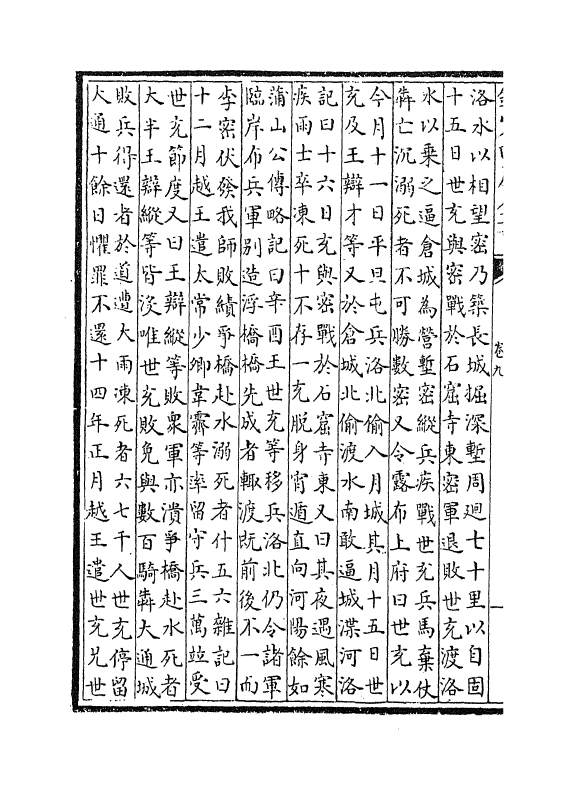 卷九
洛水以相望密乃築長城掘深塹周迴七十里以自固
十五日世充與密戰於石窟寺東密軍退敗世充渡洛
水以乗之逼倉城為營塹密縱兵疾戰世充兵馬棄仗
犇亡沉溺死者不可勝數密又令露布上府曰世充以
今月十一日平旦屯兵洛北偷入月城其月十五日世
充及王辯才等又於倉城北偷渡水南敢逼城湈河洛
記曰十六日充與密戰於石窟寺東又曰其夜遇風寒
疾雨士卒凍死十不存一充脱身宵遁直向河陽餘如
蒲山公傳略記曰辛酉王世充等移兵洛北仍令諸軍
臨岸布兵軍别造浮橋橋先成者輙渡既前後不一而
李密伏發我師敗績爭橋赴水溺死者什五六雜記曰
十二月越王遣太常少卿韋霽等率留守兵三萬竝受
世充節度又曰王辯縱等敗衆軍亦潰爭橋赴水死者
大半王辯縱等皆沒唯世充敗免與數百騎犇大通城
敗兵得還者於道遭大雨凍死者六七千人世充停留
大通十餘日懼罪不還十四年正月越王遣世充兄世